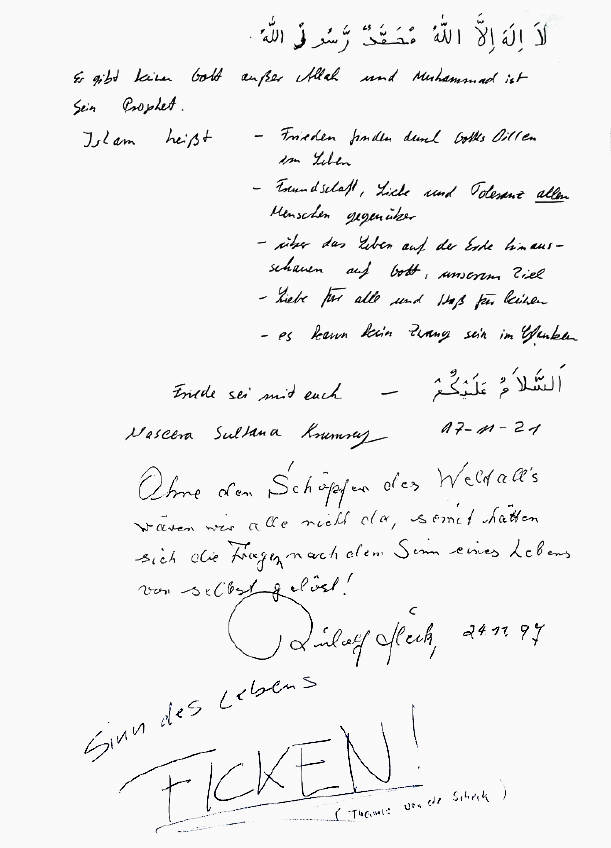 لَا اِلٰهَ اِلَّا اللّٰهُ مُحَمَّدٌ رَّسُولُ اللّٰهُ
Er gibt keinen Gott außer Allah und Muhammad ist
sein Prophet.
Islam heißt - Frieden finden durch Gottes Willen
im Leben
- Freundschaft, Liebe und Toleranz allen
Menschen gegenüber
- über das Leben auf der Erde hinaus-
schauen auf Gott, unserem Ziel
- Liebe für alle und Haß für keinen
- es kann kein Zwang sein im Glauben
Friede sei mit euch - اَلسَّلَامُ عَلَيْكُمْ
Naseera Sultana 17-11-21
Ohne den Schöpfer des Weltall's
wären wir alle nicht da, somit hätten
sich die Fragen nach dem Sinn eines Lebens
von selbst gelöst!
24 11. 97
Sinn des Lebens
FICKEN!
(Thomas von der)